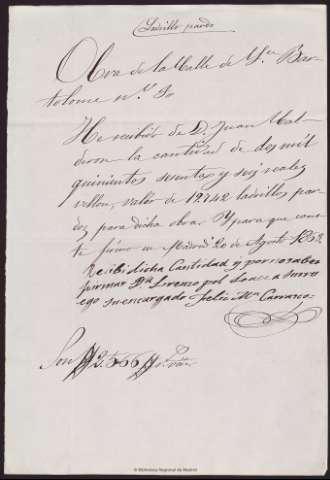 Ladrillo pardo
Obra de la Calle de Sn. Bar-
tolome nº.
He recibido de D. Juan Mal-
la cantidad de dos mil
quinientos y seis reales
vellon, valor de 12.742 ladrillos par-
dos para dicha obra. Y para que cons-
te firmo en Madrid 20 de Agosto
Recibi dicha Cantidad y por no saber
firmar Dn. Lorenzo lo ace a su rru
ego su encargado Felis Mª. Carrasco.
Son
© Biblioteca Regional de Madrid